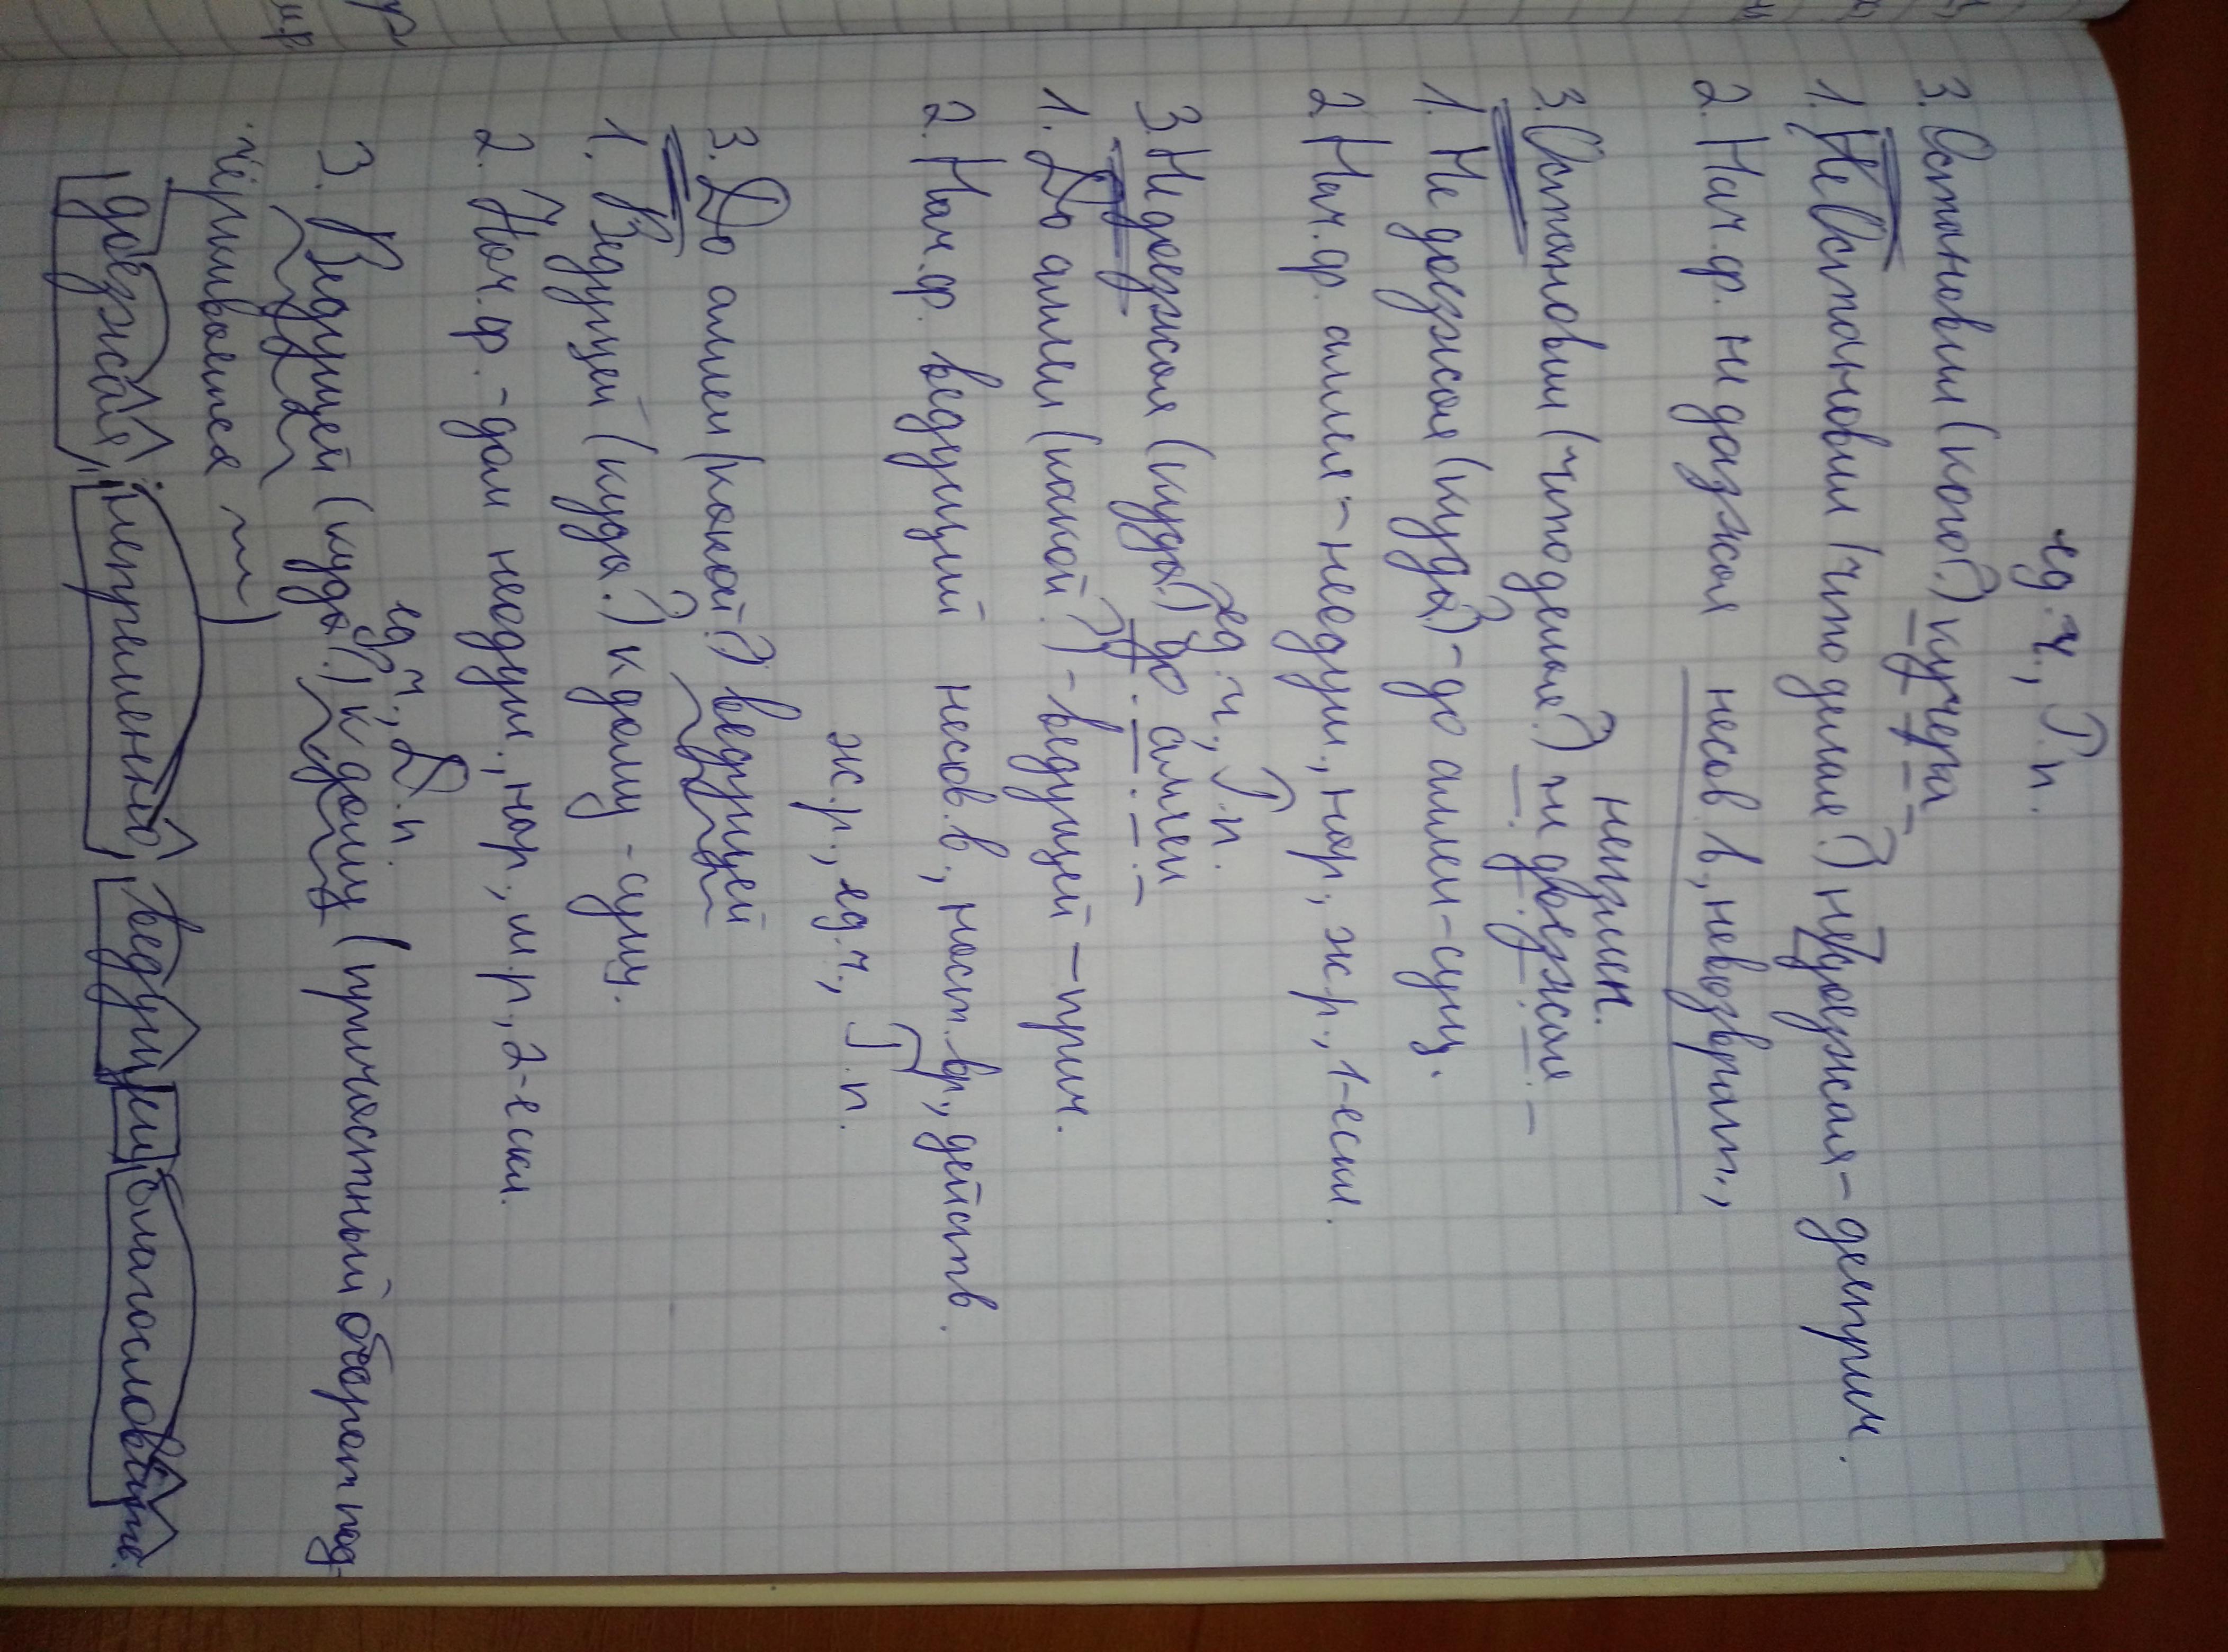 ед.ч., Р.п.
3. Остановил (кого?) кучера
1. Не Остановил (что делая?) не доезжая – дееприч.
2. Нач.ф. не доезжая несов.в., невозврат.,
неизмен.
3. Остановил (что делая?) не доезжая
1. Не доезжая (куда?) – до аллеи – сущ.
2. Нач.ф. аллея – неодуш., нар., ж.р., 1-е скл.
ед.ч., Р.п.
3. Не доезжая (куда?) до аллеи
1. До аллеи (какой?) – ведущей – прич.
2. Нач.ф. ведущий несов.в., наст.вр., действ.
ж.р., ед.ч., Р.п.
3. До аллеи (какой?) ведущей
1. Ведущей (куда?) к дому – сущ.
2. Нач.ф. – дом неодуш., нар., м.р., 2-е скл.
ед.ч., Д.п.
3. Ведущей (куда?) к дому (причастный оборот под-
чёркивается
доезжая, непременно, ведущий, благословить.